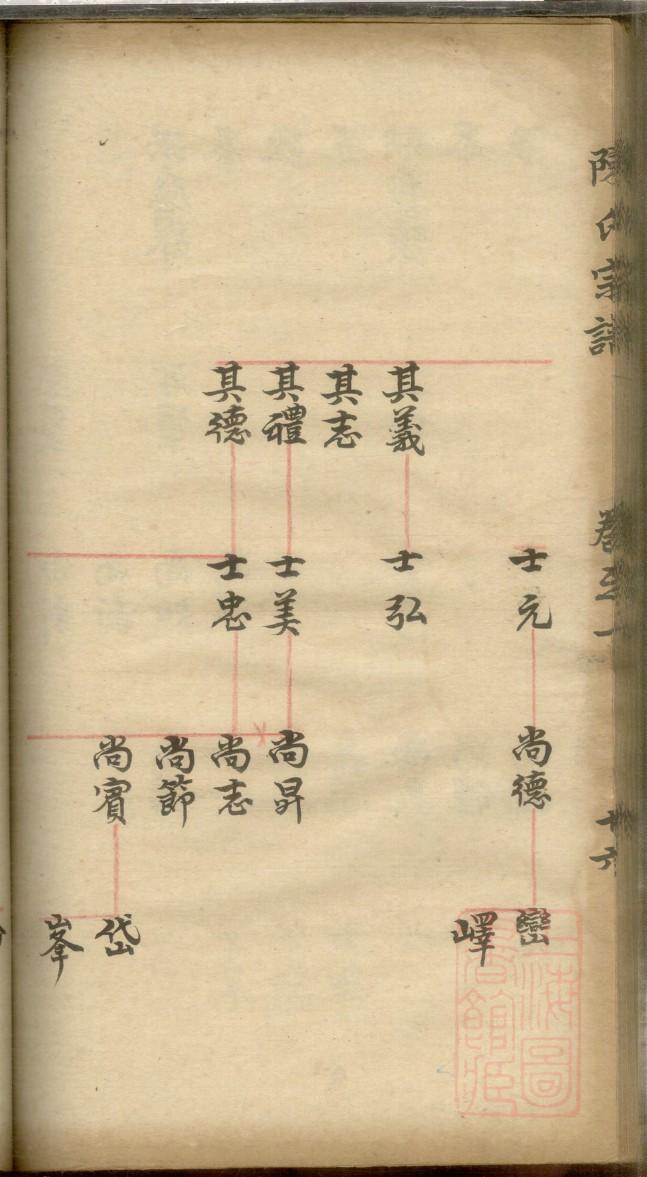 陳氏宗譜
十六
其義
其志
其禮
其德
士元
士弘
士美
士忠
尚德
尚昇
尚志
尚節
尚賓
巒
嶧
岱
峯
上海圖書館藏